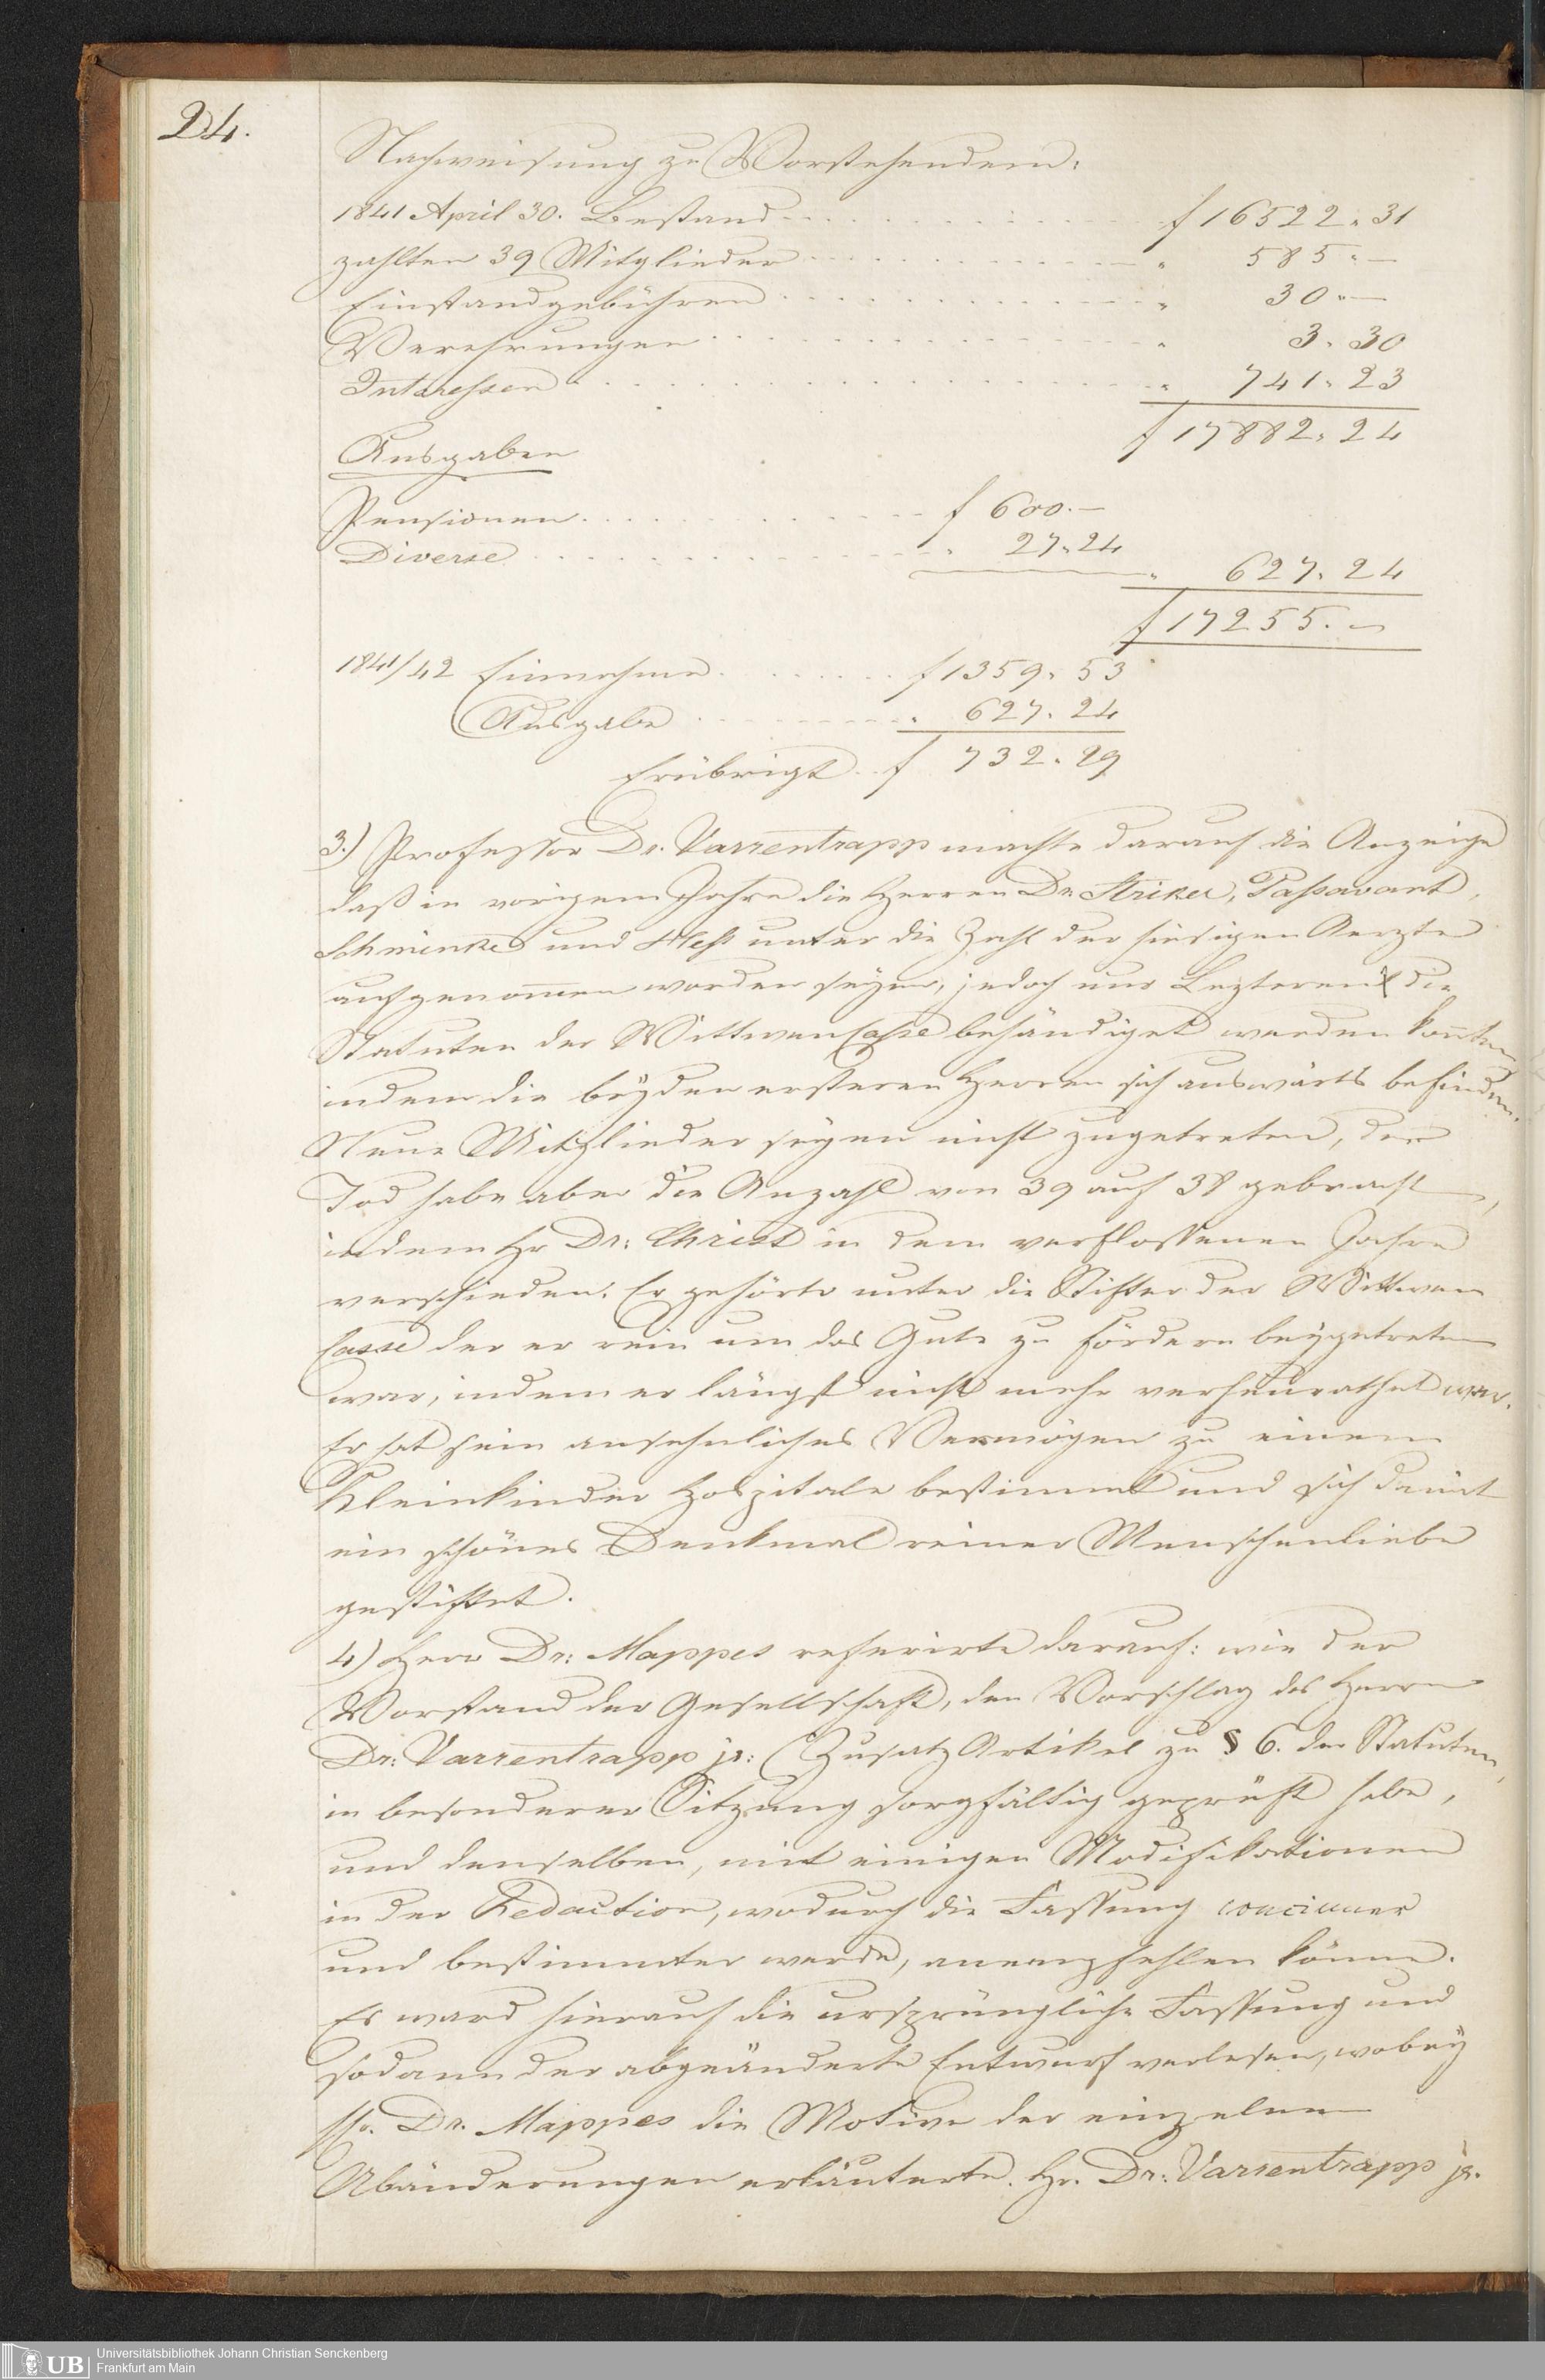 24.
Nachweisung zu Vorstehendem:
1841 April 30. Bestand f 16522.31
zahlten 39 Mitglieder " 585.—
Einstandgebühren " 30.—
Verehrungen " 3.30
Interessen " 741.23
f 17882.24
Ausgaben
Pensionen f 600.—
Diverse " 27.24
" 627.24
f 17255.—
1841/42 Einnahme f 1359.53
Ausgabe " 627.24
Erübrigt f 732.29
3.) Professor Dr. Varrentrapp machte darauf die Anzeige
daß in vorigem Jahre die Herren Dr. Striker, Passavant,
Schminke und Heß unter die Zahl der hiesigen Aerzte
aufgenommen worden seyen, jedoch nur Lezteren die
Statuten der Wittwen Casse behändiget werden konnten
indem die beyden ersteren Herren sich auswärts befinden.
Neue Mitglieder seyen nicht zugetreten, der
Tod habe aber die Anzahl von 39 auf 38 gebracht,
indem Hr Dr: Christ in dem verflossenen Jahre
verschieden. Er gehörte unter die Stifter der Wittwen
Casse der er rein um das Gute zu fördern beygetreten
war, indem er längst nicht mehr verheurathet war.
Er hat sein ansehnliches Vermögen zu einem
Kleinkinder Hospitale bestimmt und sich damit
ein schönes Denkmal reiner Menschenliebe
gestiftet.
4) Herr Dr: Mappes referirte darauf: wie der
Vorstand der Gesellschaft, den Vorschlag des Herrn
Dr: Varrentrapp jr: (Zusatz Artikel zu § 6. der Statuten,
in besonderer Sitzung sorgfältig geprüft habe,
und denselben, mit einigen Modifikationen
in der Redaction, wodurch die Fassung concinner
und bestimmter werde, anempfehlen könne.
Es ward hierauf die ursprüngliche Fassung und
sodann der abgeänderte Entwurf verlesen, wobey
Hr. Dr. Mappes die Motive der einzelnen
Abänderungen erläuterte. Hr. Dr: Varrentrapp jr.
UB
Universitätsbibliothek Johann Christian Senckenberg
Frankfurt am Main